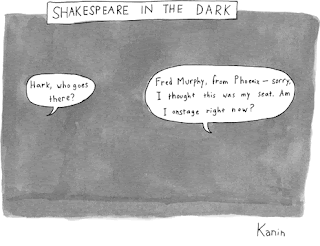 SHAKESPEARE IN THE DARK
Hark, who goes
there?
Fred Murphy, from Phoenix – sorry,
I thought this was my seat. Am
I onstage right now?
Kanin